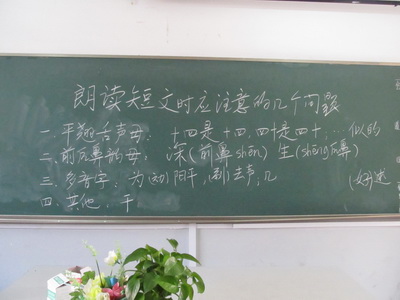 朗读短文时应注意的几个问题
一.平翘舌声母：十四是十四,四十是四十,…似的
二.前后鼻韵母：深(前鼻shēn) 生(shēng后鼻)
三.多音字：为(动)阳平,(副)去声,几 (好)述
四.其他,干